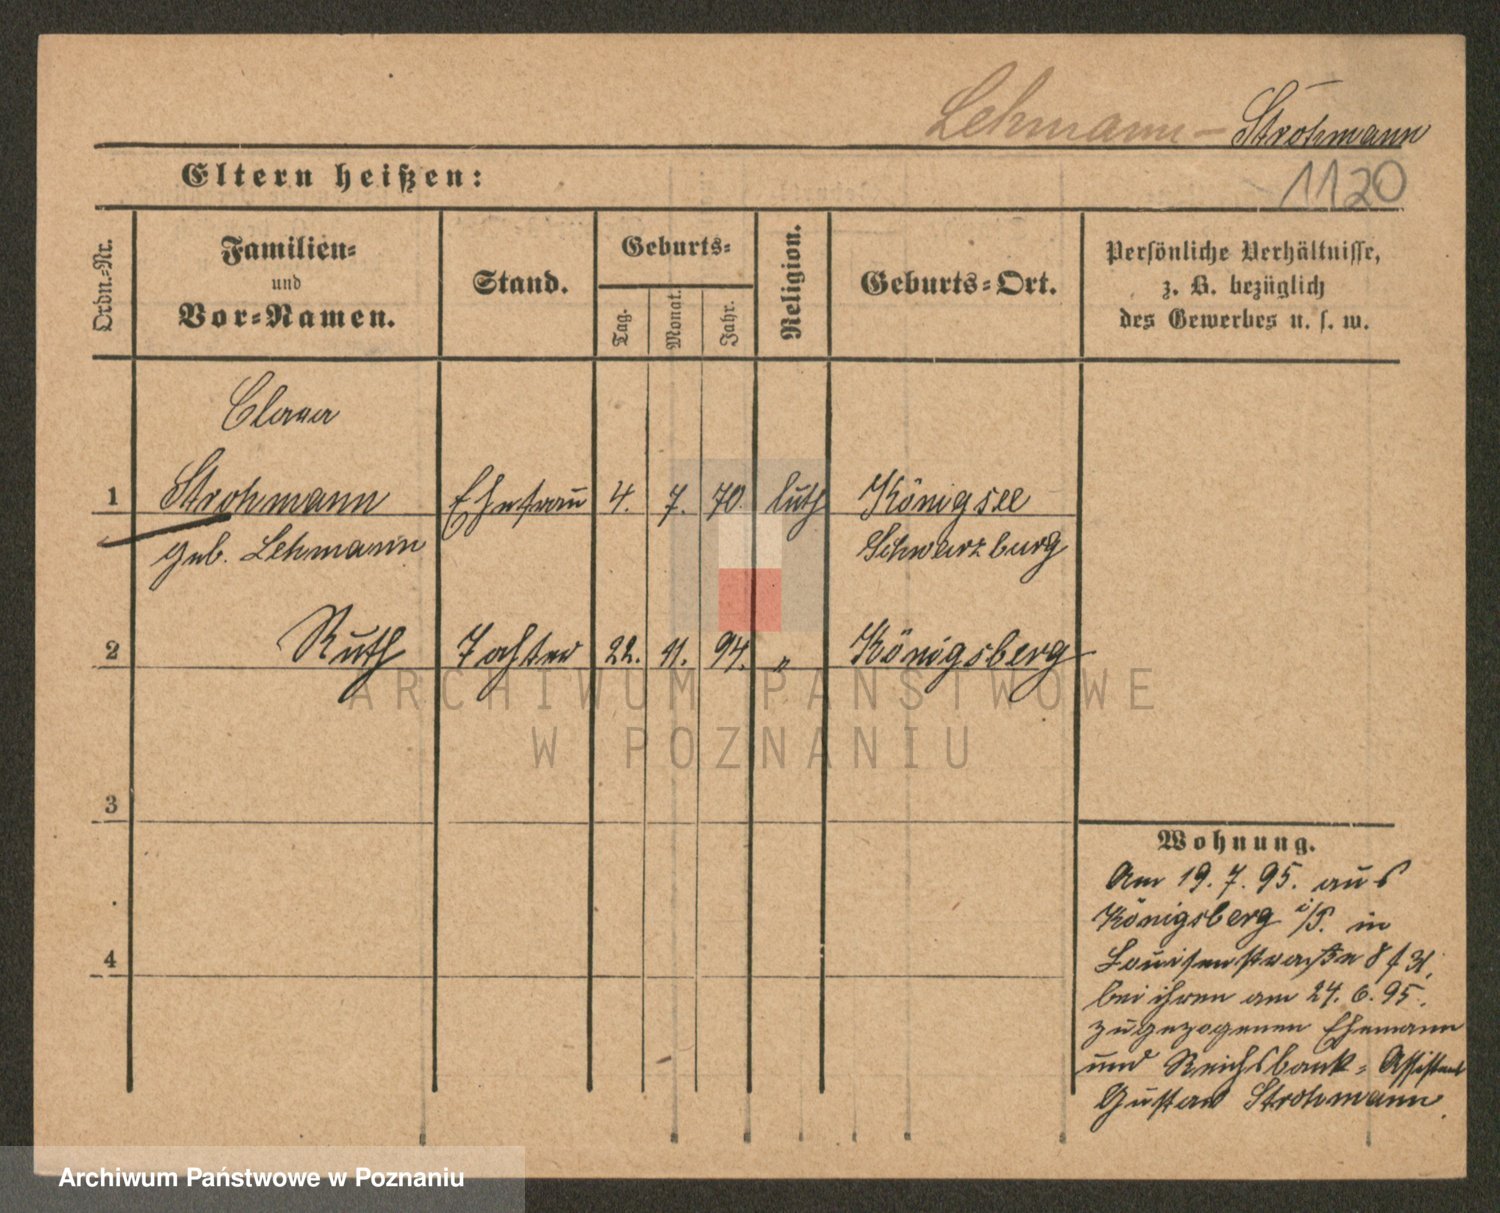 Lehmann - Strohmann
1120
Eltern heißen:
Ordn.-Nr.
Familien-
und
Vor-Namen.
Stand.
Geburts-
Tag.
Monat.
Jahr.
Religion.
Geburts-Ort.
Persönliche Verhältnisse,
z. B. bezüglich
des Gewerbes u. s. w.
Clara
1 Strohmann Ehefrau 4. 7. 70. luth Königsee
geb. Lehmann Schwarzburg
2 Ruth Tochter 22. 11. 94. " Königsberg
3
4
Wohnung.
Am 19. 7. 95. aus
Königsberg i/P. in
Louisenstraße 8
bei ihren am 24. 6. 95.
zugezogenen Ehemann
und Reichsbank-Assistent
Gustav Strohmann.
ARCHIWUM PAŃSTWOWE
W POZNANIU
Archiwum Państwowe w Poznaniu